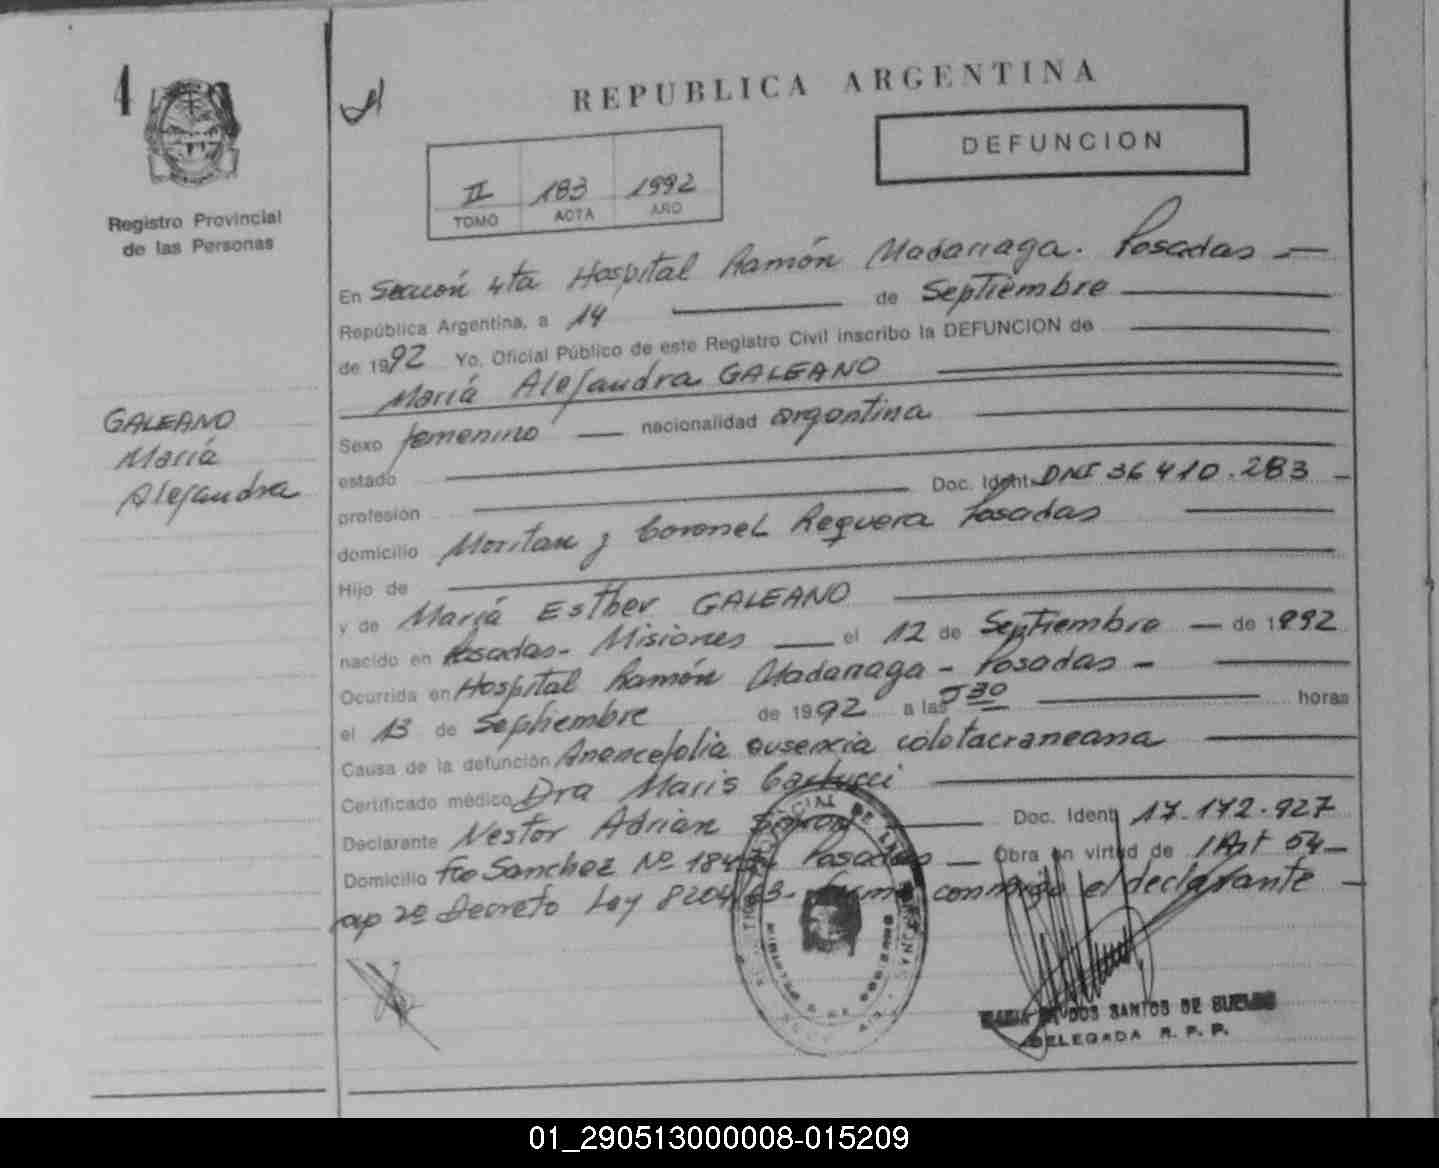 1
REPUBLICA ARGENTINA
DEFUNCION
II 183 1992
TOMO ACTA AÑO
Registro Provincial
de las Personas
GALEANO
María
Alejandra
En Sección 4ta Hospital Ramón Madariaga. Posadas —
República Argentina, a 14 — de Septiembre —
de 1992 Yo, Oficial Público de este Registro Civil inscribo la DEFUNCION de —
María Alejandra GALEANO —
Sexo femenino — nacionalidad argentina —
estado —
profesión — Doc. Ident. DNI 36410.283 —
domicilio Moritan y Coronel Reguera Posadas —
Hijo de —
y de María Esther GALEANO —
nacido en Posadas - Misiones — el 12 de Septiembre — de 1992
Ocurrida en Hospital Ramón Madariaga - Posadas - —
el 13 de Septiembre de 1992 a las 5 30 — horas
Causa de la defunción Anencefalia ausencia calotacraneana —
Certificado médico Dra Maris Carlucci —
Declarante Nestor Adrian — Doc. Ident 17.172.927
Domicilio Fco Sanchez Nº Posadas — Obra en virtud de Art 54 —
ap 2º Decreto Ley 8204/63 - firma conmigo el declarante —
DOS SANTOS DE
DELEGADA R. P. P.
01_290513000008-015209